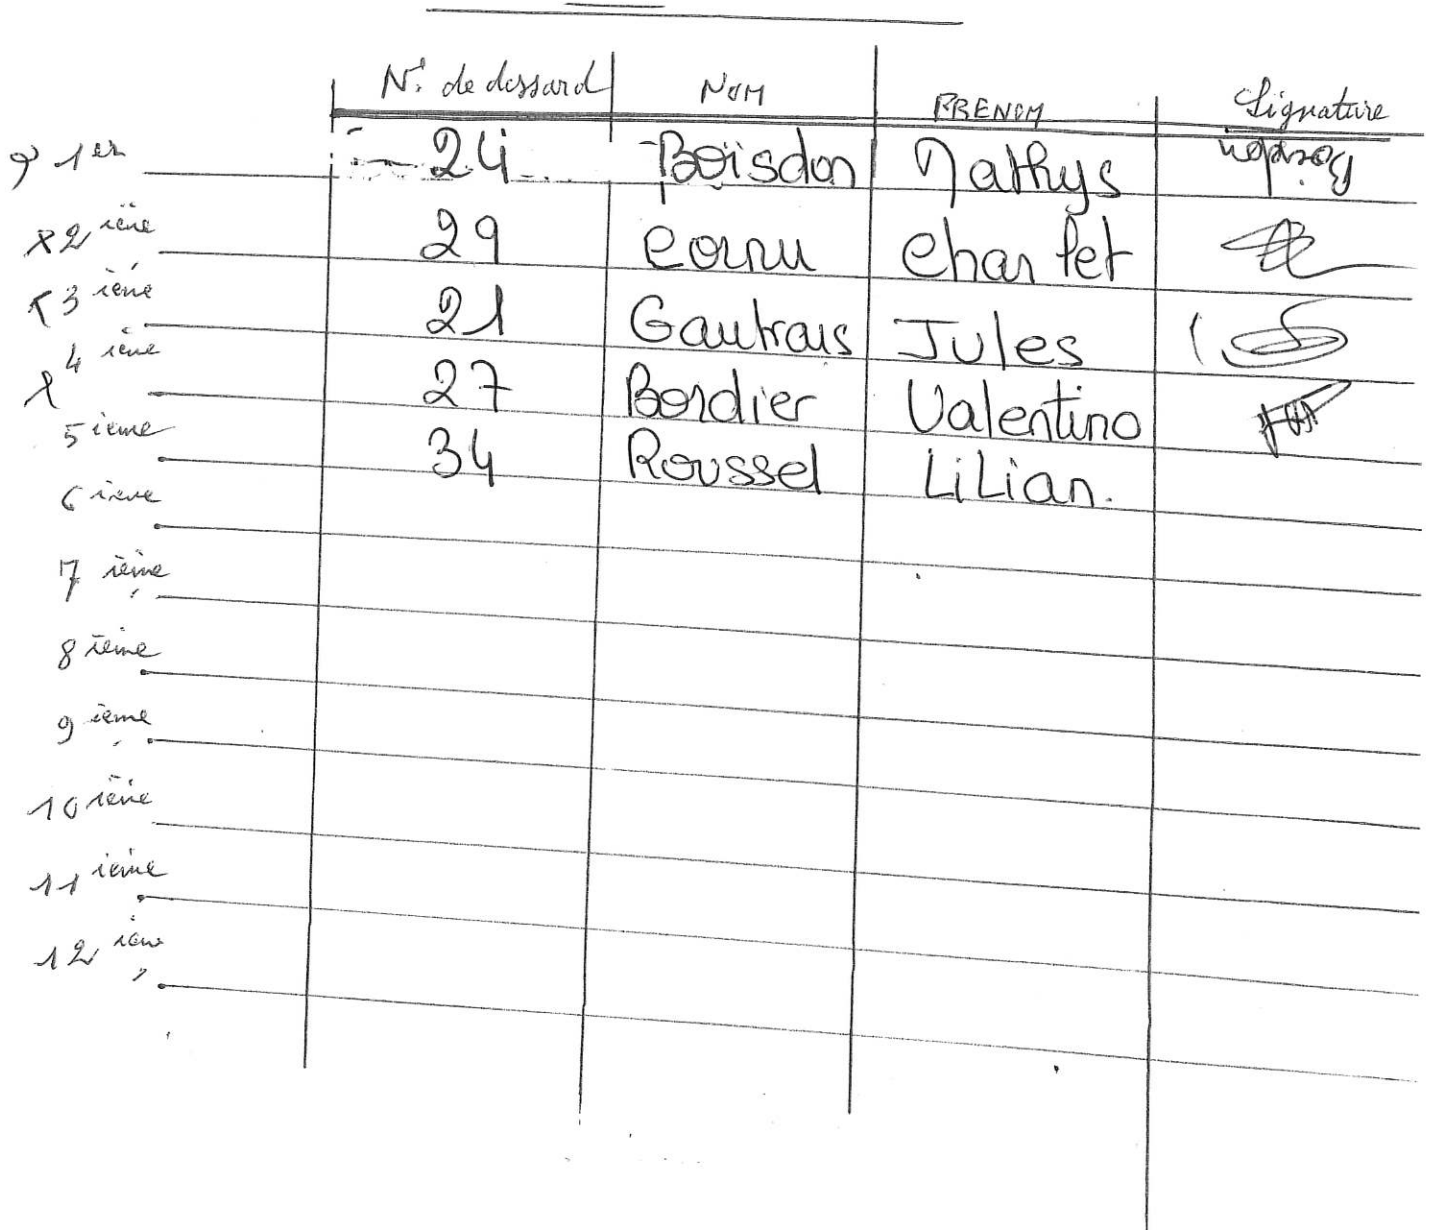 N° de dossard NOM PRENOM Signature
1er 24 Boisdon Mathys Boisdon
2ième 29 Cornu Charlet
3ième 21 Gautrais Jules
4ième 27 Bordier Valentino
5ième 34 Roussel Lilian.
6ième
7ième
8ième
9ième
10ième
11ième
12ième